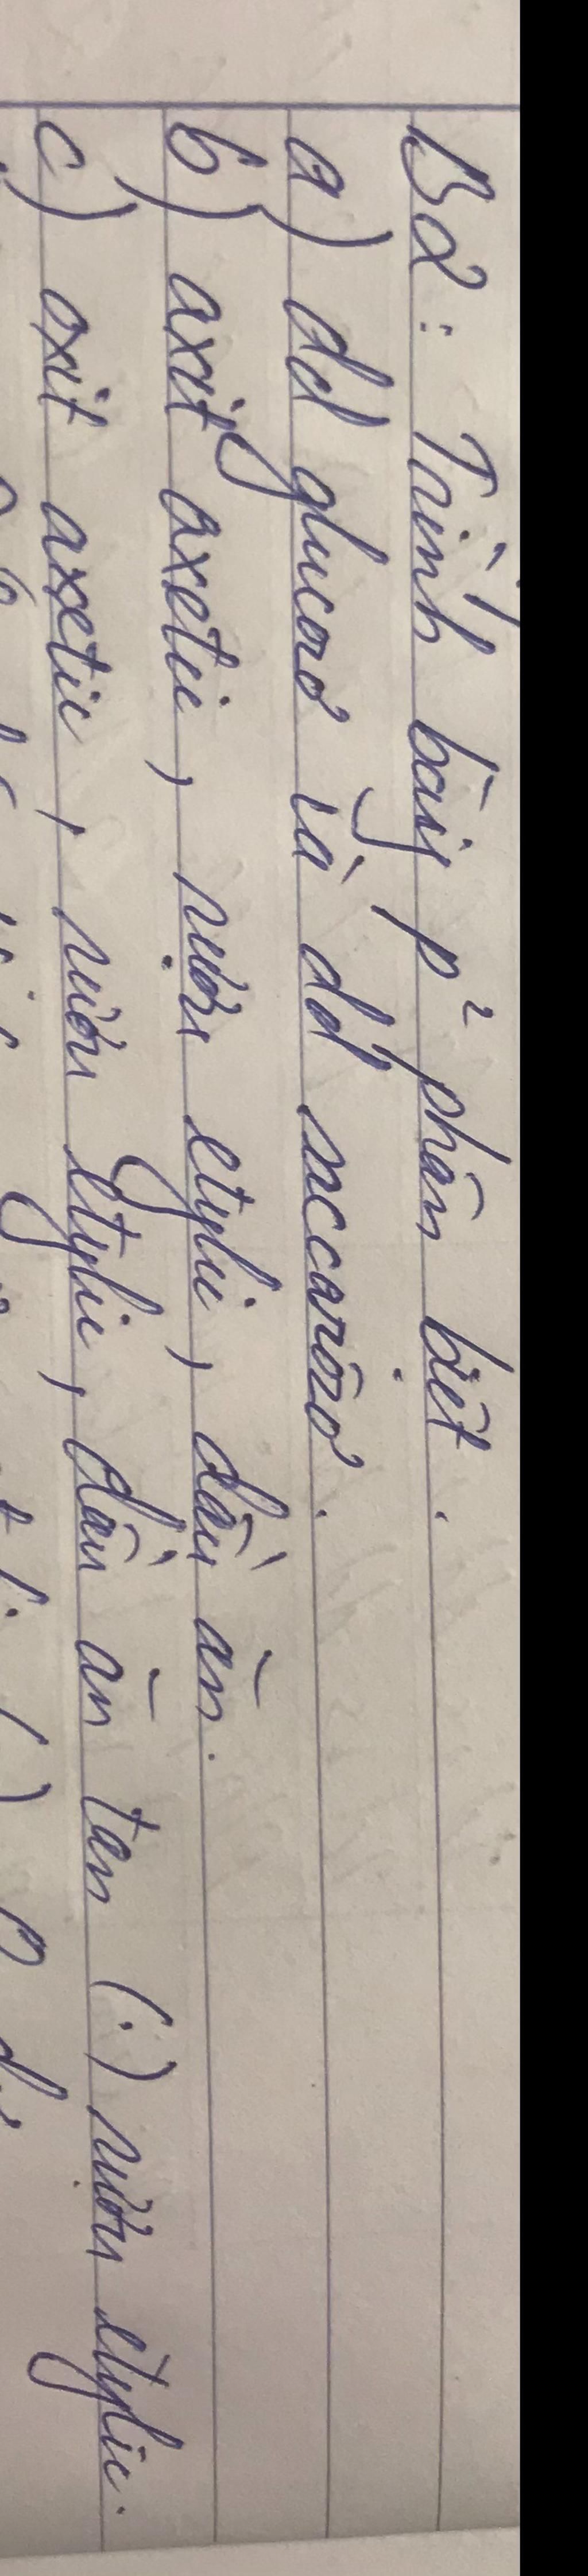 B2: Trình bày p² phân biệt.
a) dd glucozơ và dd saccarozơ.
b) axit axetic, rượu etylic, dầu ăn.
c) axit axetic, rượu etylic, dầu ăn tan (.) rượu etylic.